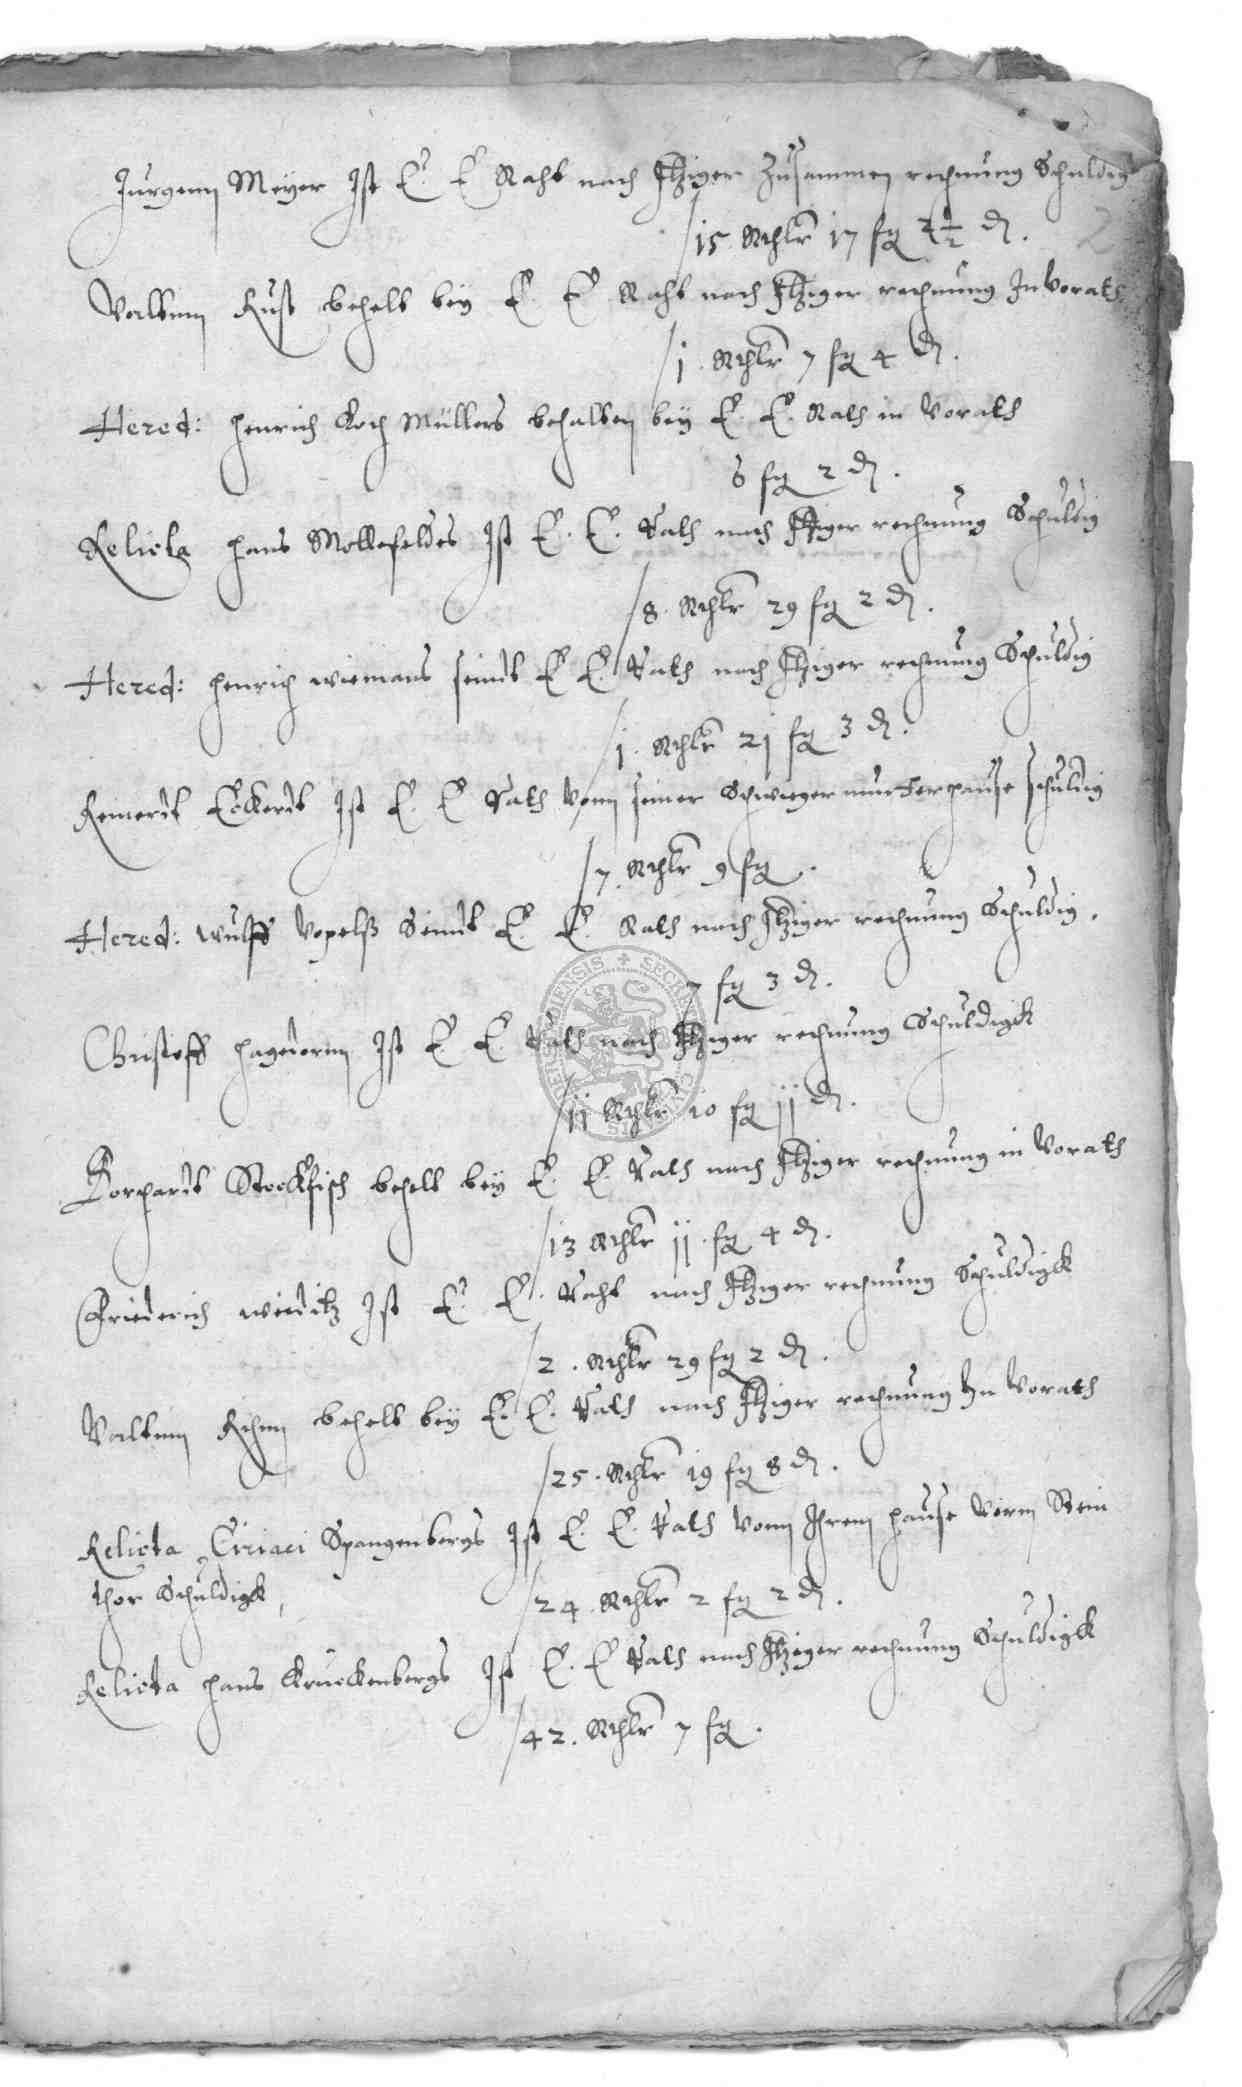 Jurgenn Meyer Ist E. E Raht nach Itziger Zusammen rechnung Schuldig
15 Rthlr 17 fg 2 1/2 d.
2
Valtinn Rust behelt bey E. E Raht nach Itziger rechnung In Vorath
j. Rthlr 7 fg 4 d.
Hered: Henrich Koch Müllers behalten bey E. E. Rath in Vorath
6 fg 2 d.
Relicta Hans Mollefeldes Ist E. E. Rath nach Itziger rechnung Schuldig
8. Rthlr 29 fg 2 d.
Hered: Henrich wiemans seindt E E. Rath nach Itziger rechnung Schuldig
j. Rthlr 2j fg 3 d.
Remerdt Eckerdt Ist E. E Rath Vonn seiner Schwieger mutter Hause schuldig
7. Rthlr 9 fg.
Hered: wulff Vopelß Seindt E. E. Rath nach Itziger rechnung Schuldig.
7 fg 3 d.
Christoff Hagedornn Ist E. E. Rath nach Itziger rechnung Schuldigk
jj Rthlr 10 fg jj d.
SECRE CIVITATIS
Borchardt Stockfisch behelt bey E. E. Rath nach Itziger rechnung in Vorath
13 Rthlr jj. fg 4 d.
Friederich wieditz Ist E. E. Raht nach Itziger rechnung Schuldigk
2. Rthlr 29 fg 2 d.
Valtinn Rhenn behelt bey E. E. Rath nach Itziger rechnung In Vorath
25. Rthlr 19 fg 8 d.
Relicta Ciriaci Spangenbergs Ist E. E. Rath Vonn Ihrem Hause Vorm Stein
thor Schuldigk,
24. Rthlr 2 fg 2 d.
Relicta Hans Kruckenbergs Ist E. E Rath nach Itziger rechnung Schuldigk
42. Rthlr 7 fg.